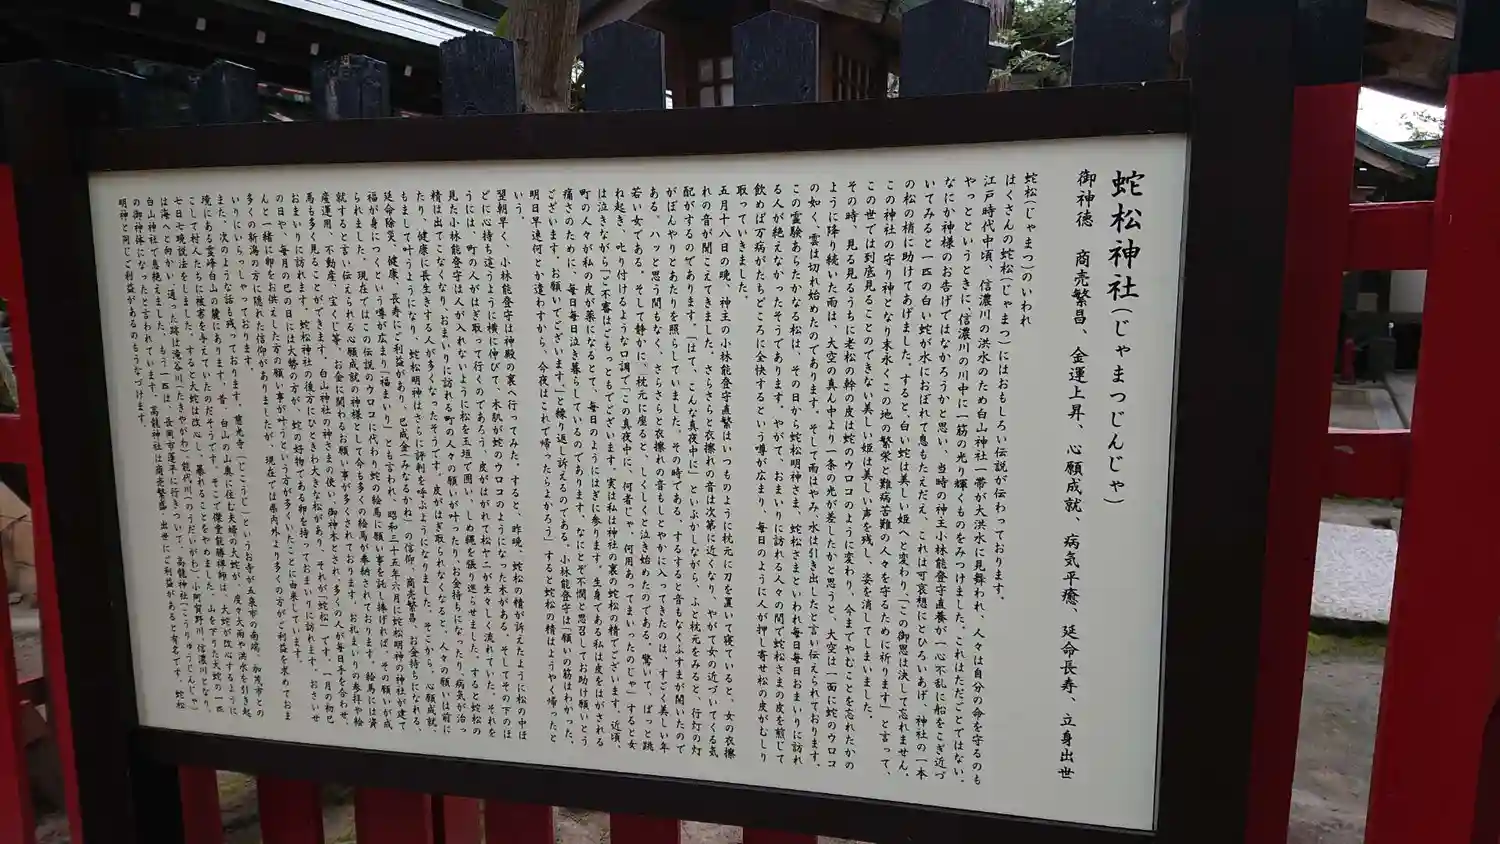 蛇松神社(じゃまつじんじゃ)
御神徳　商売繁昌、金運上昇、心願成就、病気平癒、延命長寿、立身出世
蛇松(じゃまつ)のいわれ
はくさんの蛇松(じゃまつ)にはおもしろい伝説が伝わっております。
江戸時代中頃、信濃川の洪水のため白山神社一帯が大洪水に見舞われ、人々は自分の命を守るのも
やっとというときに、信濃川の川中に一筋の光り輝くものをみつけました。これはただごとではない。
なにか神様のお告げではなかろうかと思い、当時の神主小林能登守直養が一心不乱に船をこぎ近づ
いてみると一匹の白い蛇が水におぼれて息もたえだえ、これは可哀想にとひろいあげ、神社の一本
の松の梢に助けてあげました。すると白い蛇は美しい姫へと変わり、「この御恩は決して忘れません。
この神社の守り神となり末永くこの地の繁栄と難病苦難の人々を守るために祈ります」と言って、
この世では到底見ることのできない美しい姫は美しい声を残し、姿を消してしまいました。
その時、見る見るうちに老松の幹の皮は蛇のウロコのように変わり、今までやむことを忘れたかの
ように降り続いた雨は、大空の真ん中より一条の光が差したかと思うと、大空は一面に蛇のウロコ
の如く、雲は切れ始めたのであります。そして雨はやみ、水は引き出したと言い伝えられております。
この霊験あらたかなる松は、その日から蛇松明神さま、蛇松さまといわれ毎日毎日おまいりに訪れ
る人が絶えなかったそうであります。やがて、おまいりに訪れる人々の間で蛇松さまの皮を煎じて
飲めば万病がたちどころに全快するという噂が広まり、毎日のように人が押し寄せ松の皮がむしり
取っていきました。
五月十八日の晩、神主の小林能登守直繁はいつものように枕元に刀を置いて寝ていると、女の衣擦
れの音が聞こえてきました。さらさらと衣擦れの音は次第に近くなり、やがて女の近づいてくる気
配がするのであります。「はて、こんな真夜中に」といぶかしながら、ふと枕元をみると、行灯の灯
がぼんやりとあたりを照らしていました。その時である、するすると音もなくふすまが開いたので
ある。ハッと思う間もなく、さらさらと衣擦れの音もしとやかに入ってきたのは、すごく美しい年
若い女である。そして静かに、枕元に座ると、しくしくと泣き始めたのである。驚いて、ぱっと跳
ね起き、叱り付けるような口調で「この真夜中に、何者じゃ、何用あってまいったのじゃ」すると女
は泣きながら「ご不審はごもっともでございます。実は私は神社の裏の蛇松の精でございます。近頃、
町の人々が私の皮が薬になるとて、毎日のようにはぎに参ります。生身である私は皮をはがされる
痛さのために、毎日毎日泣き暮らしているのであります。なにとぞ不憫と思召してお助け願いとう
ございます。お願いでございます。」と繰り返し訴えるのである。小林能登守は「願いの筋はわかった。
明日早速何とか違わすから、今夜はこれで帰ったらよかろう」すると蛇松の精はようやく帰ったと
いう。
翌朝早く、小林能登守は神殿の裏へ行ってみた。すると、昨晩、蛇松の精が訴えたように松の中ほ
どに心持ち這うように横に伸びて、木肌が蛇のウロコのようになった木がある。そしてその下のほ
うには、町の人がはぎ取って行くのであろう、皮がはがれて松ヤニが生々しく流れていた。それを
見た小林能登守は人が入れないように松を玉垣で囲い、しめ縄を張り巡らせました。すると蛇松の
精は出てこなくなり、おまいりに訪れる町の人々の願いが叶ったり、お金持ちになったり、病気が治っ
たり、健康に長生きする人が多くなったそうです。皮がはぎ取られなくなると、人々の願いは前に
もまして叶うようになり、蛇松明神はさらに評判を呼ぶようになりました。そこから、心願成就、
延命除災、健康、長寿にご利益があり、巳成金(みなるかね)の信仰、商売繁昌、お金持ちになれる、
福が身につくという噂が広まり「福まいり」とも言われ、昭和三十五年六月に蛇松明神の神社が建て
られました。現在ではこの伝説のウロコに代わり蛇の絵馬に願い事を託し捧げれば、その願いが成
就すると言い伝えられる心願成就の神様として今も多くの絵馬が奉納されております。絵馬には資
産運用、不動産、宝くじ等、お金に関わるお願い事が多くされております。お礼まいりの参拝や絵
馬も多く見ることができます。白山神社の神さまの使い、御神木とされ、多くの人が毎日手を合わせ、
おまいりに訪れます。蛇松神社の後方にひときわ大きな松があり、それが「蛇松」です。一月の初巳
の日や、毎月の巳の日には大勢の方が、蛇の好物である卵を持っておまいりに訪れます。おさいせ
んと一緒に卵をお供えした方の願い事が叶うという方が多くいたことに由来しています。
多くの新潟の方に隠れた信仰がありましたが、現在では県内外より多くの方がご利益を求めておま
いりにいらっしゃっております。
また、次のような話も残っております。慈光寺(じこうじ)というお寺が五泉市の南端、加茂市との
境にある霊峰白山の麓にあります。昔、白山の山奥に住む夫婦の大蛇が、度々大雨や洪水を引き起
こして村人たちに被害を与えていたのだそうです。そこで傑堂能勝禅師は、大蛇が改心するように
七日七晩説法をしました。すると大蛇は改心し、暴れることをやめました。山を下りた大蛇の一匹
は海へと向かい、通った跡は滝谷川(たきやがわ)、能代川(のうだいがわ)、阿賀野川、信濃川となり、
白山神社で息絶えました。もう一匹は、長岡市蓬平に行きついて、高龍神社(こうりゅうじんじゃ)
の御神体になったと言われています。高龍神社は商売繁盛、出世にご利益があると有名です。蛇松
明神と同じご利益があるのもうなづけます。